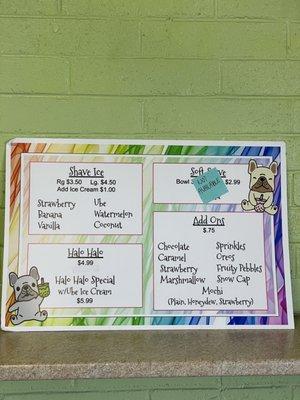 Shave Ice
Rg $3.50 Lg. $4.50
Add Ice Cream $1.00
Strawberry Ube
Banana Watermelon
Vanilla Coconut
Halo Halo
$4.99
Halo Halo Special
w/Ube Ice Cream
$5.99
Soft
Bowl $2.99
AVAILABLE
Add Ons
$.75
Chocolate Sprinkles
Caramel Oreos
Strawberry Fruity Pebbles
Marshmallow Snow Cap
Mochi
(Plain, Honeydew, Strawberry)